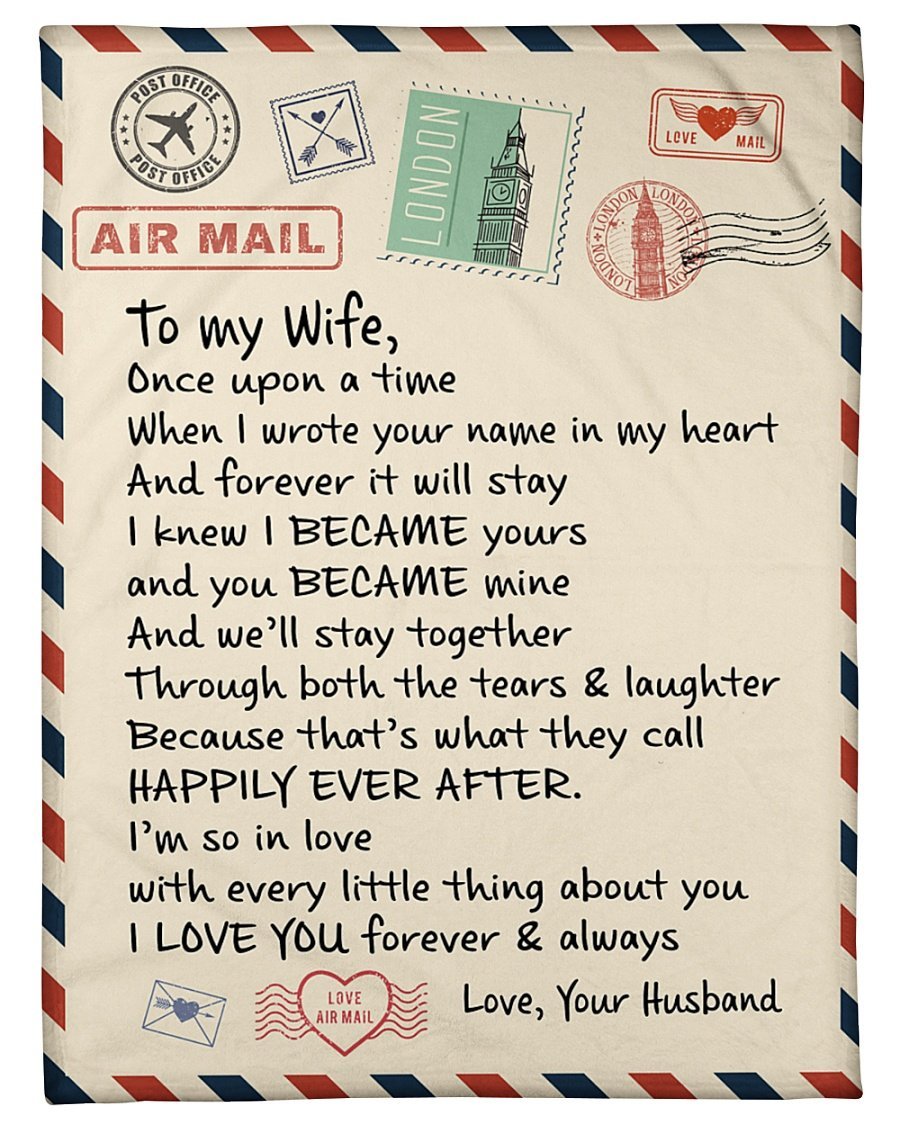 POST OFFICE
POST OFFICE
LONDON
LOVE MAIL
AIR MAIL
LONDON LONDON
LONDON LONDON
To my Wife,
Once upon a time
When I wrote your name in my heart
And forever it will stay
I knew I BECAME yours
and you BECAME mine
And we'll stay together
Through both the tears & laughter
Because that's what they call
HAPPILY EVER AFTER.
I'm so in love
with every little thing about you
I LOVE YOU forever & always
LOVE
AIR MAIL
Love, Your Husband